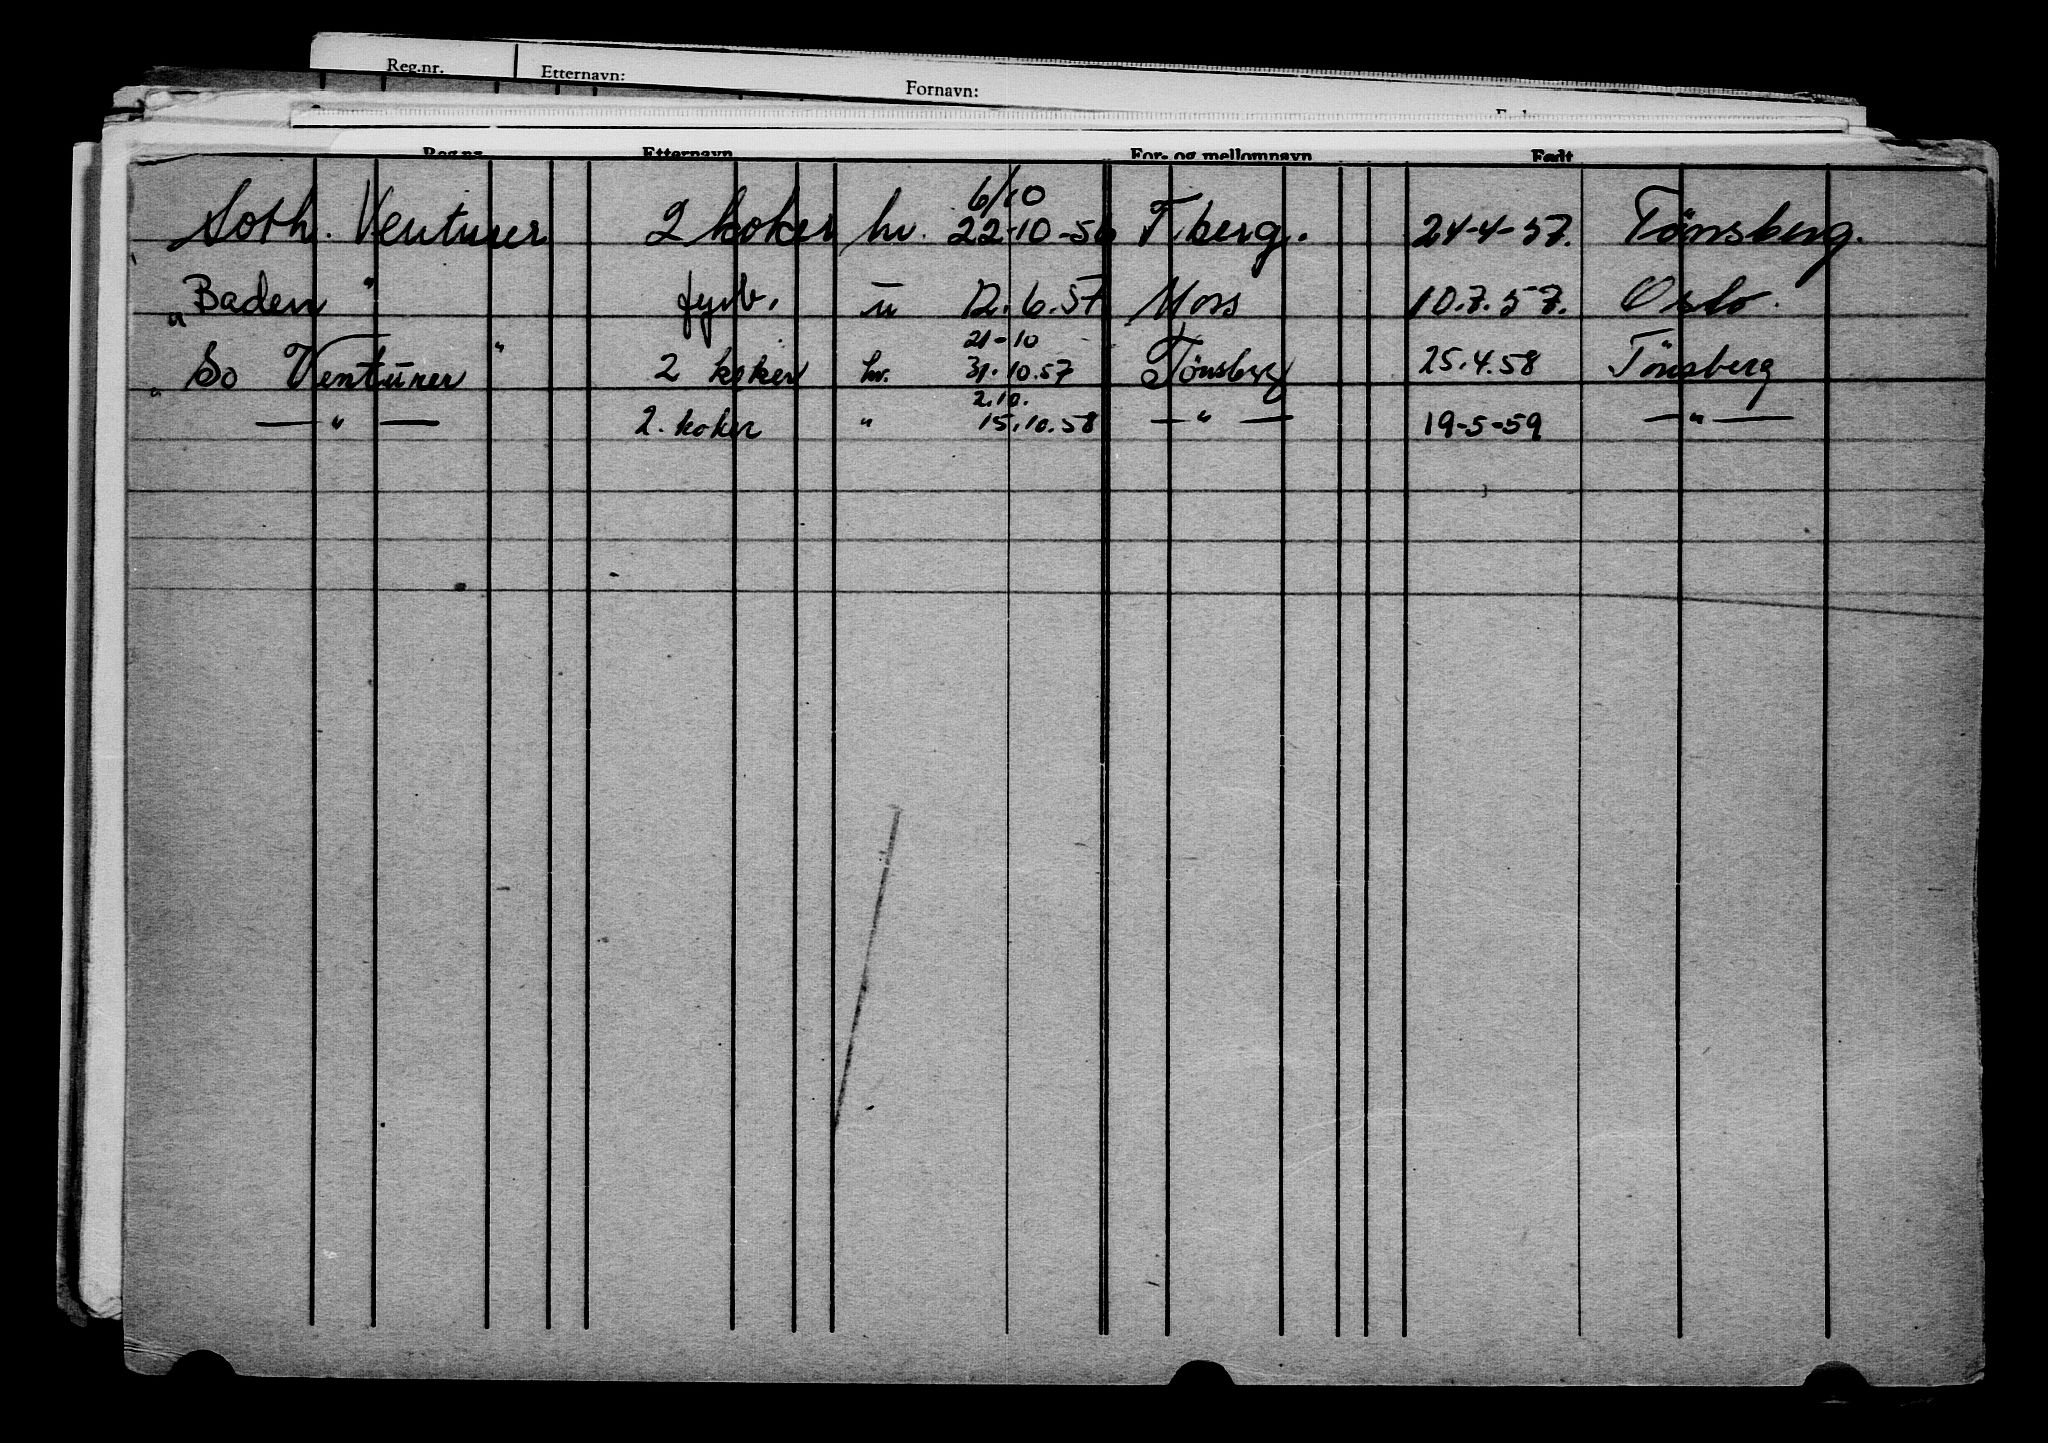 Reg.nr. Etternavn: Fornavn:
Reg.nr. Etternavn For- og mellomnavn Født
6/10
Soth. Venturer 2 koker hv. 22-10-56 T.berg. 24-4-57. Tönsberg.
" Baden " fyrb. u 12.6.57 Moss 10.7.57. Oslo.
21-10
" So Venturer " 2 koker hv. 31.10.57 Tönsberg 25.4.58 Tönsberg
2.10.
— " — 2. koker " 15.10.58 — " — 19-5-59 — " —